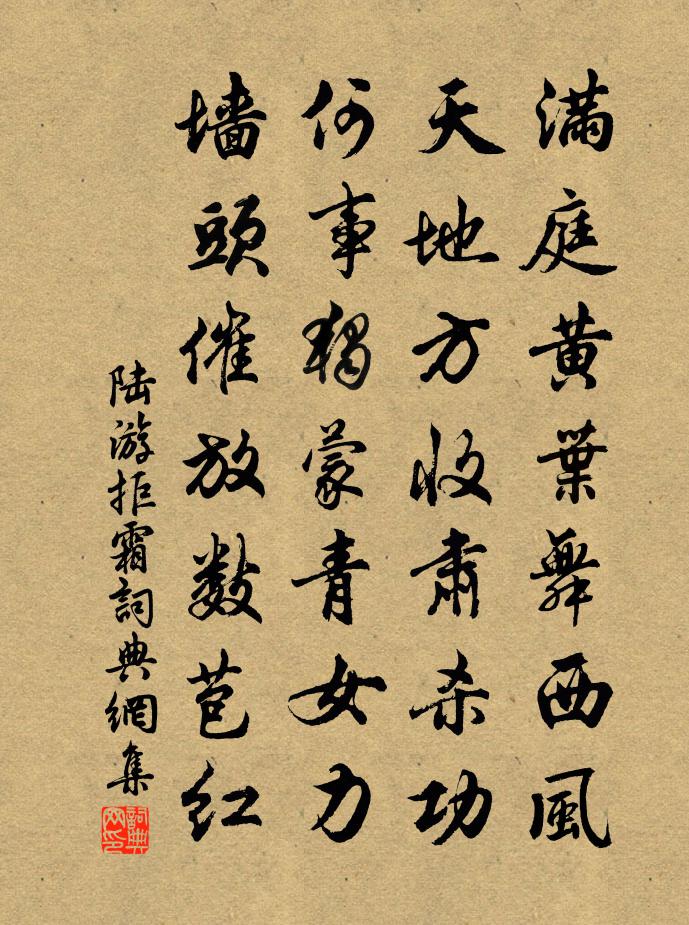 滿庭黃葉舞西風
天地方收肅杀功
何事獨蒙青女力
墙頭催放数苞紅
陆游拒霜詞典網集
詞典網印